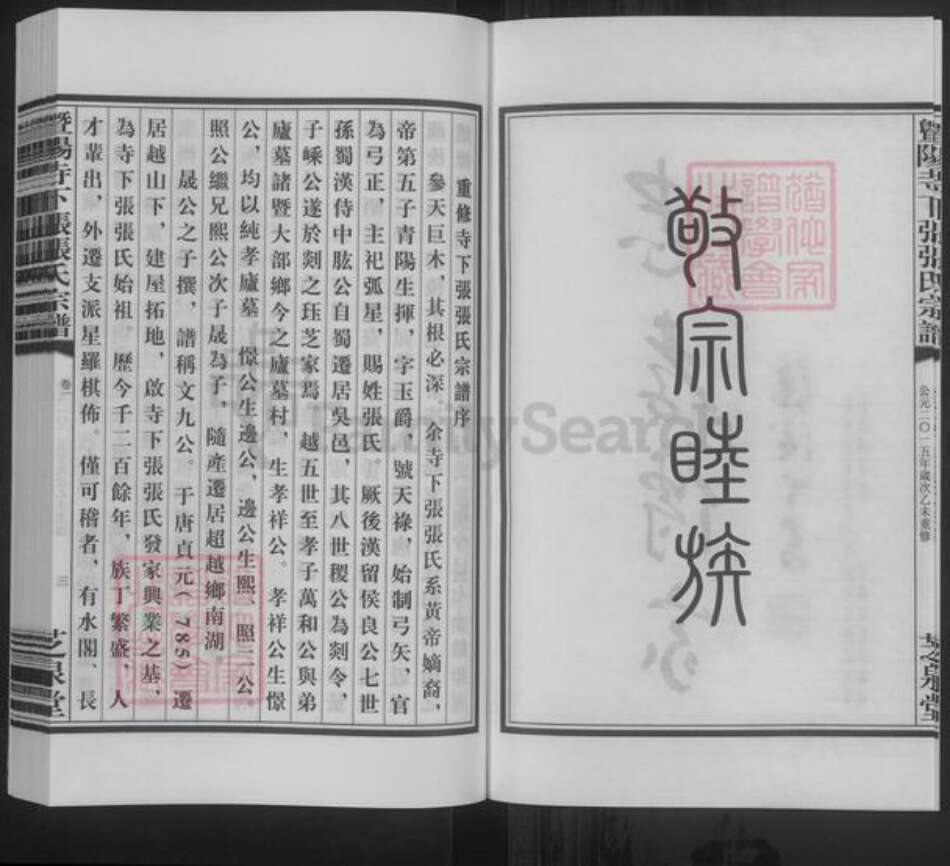 暨陽寺下張張氏宗譜
公元二〇一五年歲次乙未重修
芝泉堂
敬宗睦族
重修寺下張張氏宗譜序
參天巨木，其根必深。余寺下張張氏系黃帝嫡裔，
帝第五子青陽生揮，字玉爵，號天祿，始制弓矢，官
為弓正，主祀弧星，賜姓張氏。厥後漢留侯良公七世
孫蜀漢侍中肱公自蜀遷居吳邑，其八世稷公為剡令，
子嵊公遂於剡之珏芝家焉。越五世至孝子萬和公與弟
廬墓諸暨大部鄉今之廬墓村，生孝祥公。孝祥公生憬
公，均以純孝廬墓。憬公生邊公，邊公生熙、照二公，
照公繼兄熙公次子晟為子，隨產遷居超越鄉南湖
晟公之子撰，譜稱文九公。于唐貞元(785)遷
居越山下，建屋拓地，啟寺下張張氏發家興業之基，
為寺下張張氏始祖，歷今千二百餘年，族丁繁盛，人
才輩出，外遷支派星羅棋佈。僅可稽者，有水閣、長
暨陽寺下張張氏宗譜
卷一
三
芝泉堂
FamilySearch